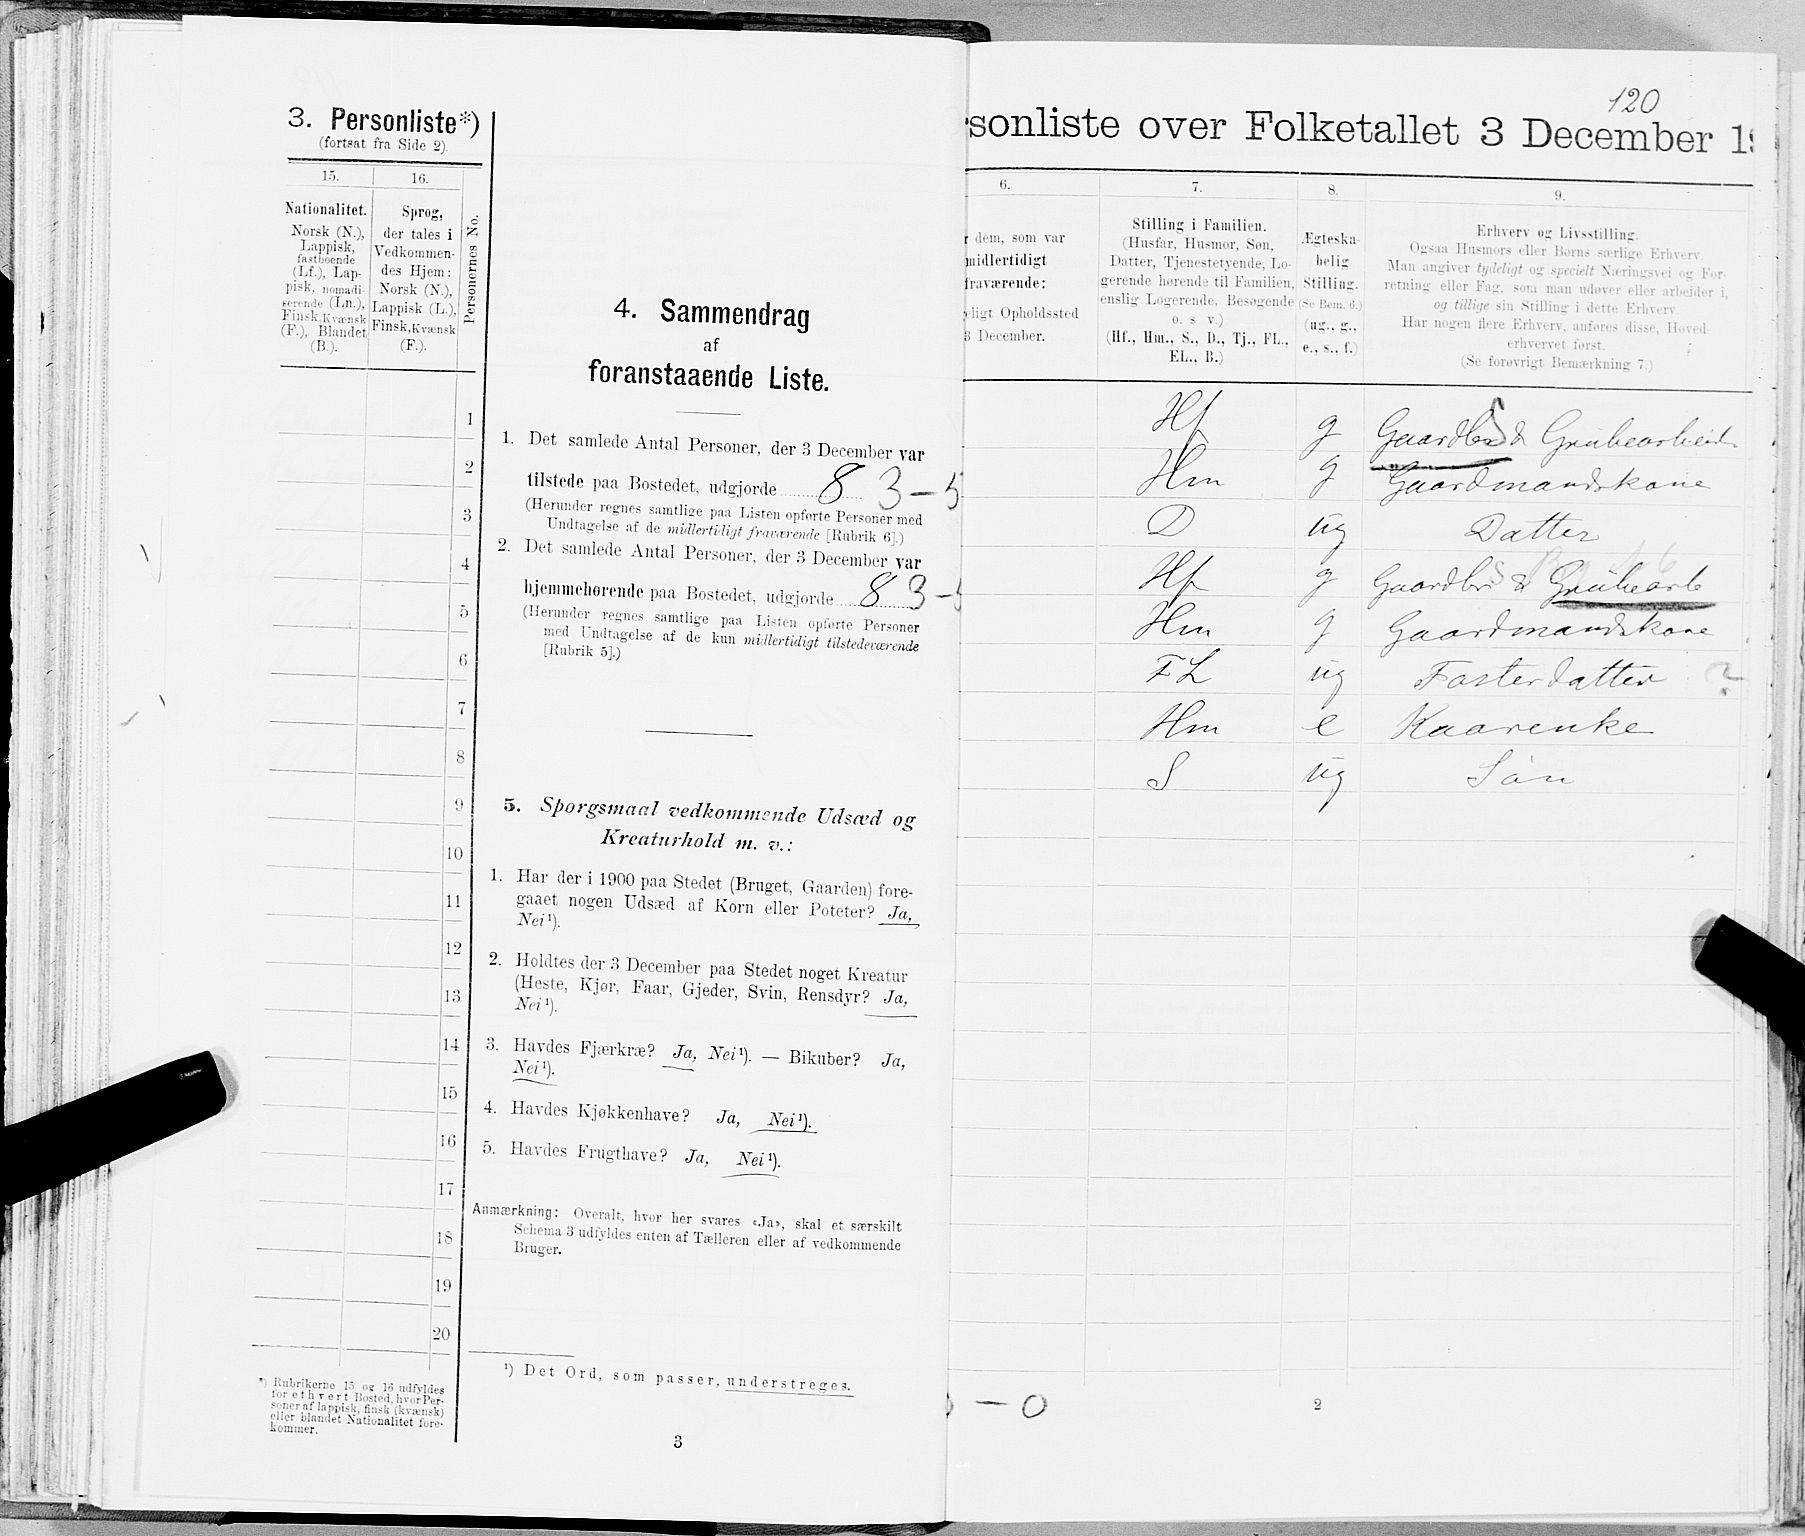 3. Personliste*)
(fortsat fra Side 2)
15.
16.
Nationalitet.
Norsk (N.),
Lappisk,
fastboende
(Lf.), Lap-
pisk, nomadi-
serende (Ln.),
Finsk, Kvænsk
(F.), Blandet
(B.).
Sprog,
der tales i
Vedkommen-
des Hjem:
Norsk (N.),
Lappisk (L.),
Finsk, Kvænsk
(F.).
Personernes No.
1
2
3
4
5
6
7
8
9
10
11
12
13
14
15
16
17
18
19
20
*) Rubrikerne 15 og 16 udfyldes
for ethvert Bosted, hvor Per-
soner af lappisk, finsk (kvænsk)
eller blandet Nationalitet fore-
kommer.
4. Sammendrag
af
foranstaaende Liste.
1. Det samlede Antal Personer, der 3 December var
tilstede paa Bostedet, udgjorde 8 3-5
(Herunder regnes samtlige paa Listen opførte Personer med
Undtagelse af de midlertidigt fraværende [Rubrik 6].)
2. Det samlede Antal Personer, der 3 December var
hjemmehørende paa Bostedet, udgjorde 8 3-5
(Herunder regnes samtlige paa Listen opførte Personer
med Undtagelse af de kun midlertidigt tilstedeværende
[Rubrik 5].)
5. Sporgsmaal vedkommende Udsæd og
Kreaturhold m. v.:
1. Har der i 1900 paa Stedet (Bruget, Gaarden) fore-
gaaet nogen Udsæd af Korn eller Poteter? Ja,
Nei¹).
2. Holdtes der 3 December paa Stedet noget Kreatur
(Heste, Kjør, Faar, Gjeder, Svin, Rensdyr? Ja,
Nei¹).
3. Havdes Fjærkræ? Ja, Nei¹). — Bikuber? Ja,
Nei¹).
4. Havdes Kjøkkenhave? Ja, Nei¹).
5. Havdes Frugthave? Ja, Nei¹).
Anmærkning: Overalt, hvor her svares «Ja», skal et særskilt
Schema 3 udfyldes enten af Tælleren eller af vedkommende
Bruger.
¹) Det Ord, som passer, understreges.
3
120
rsonliste over Folketallet 3 December 19
6.
7.
8.
9.
r dem, som var
midlertidigt
fraværende:
eligt Opholdssted
3 December.
Stilling i Familien.
(Husfar, Husmor, Søn,
Datter, Tjenestetyende, Lo-
gerende hørende til Familien,
enslig Logerende, Besøgende
o. s v.)
(Hf., Hm., S., D., Tj., FL.,
EL., B.)
Ægteska-
belig
Stilling.
(Se Bem. 6.)
(ug., g.,
e., s., f.)
Erhverv og Livsstilling.
Ogsaa Husmors eller Børns særlige Erhverv.
Man angiver tydeligt og specielt Næringsvei og For-
retning eller Fag, som man udøver eller arbeider i,
og tillige sin Stilling i dette Erhverv.
Har nogen flere Erhverv, anføres disse, Hoved-
erhvervet først.
(Se forøvrigt Bemærkning 7.)
Hf g Gaardbr S & Grubearbeid
Hm g Gaardmandskone
D ug Datter
Hf g Gaardbr S & Grubearb
Hm g Gaardmandskone
FL ug Fosterdatter ?
Hm e Kaarenke
S ug Søn
- 0
2